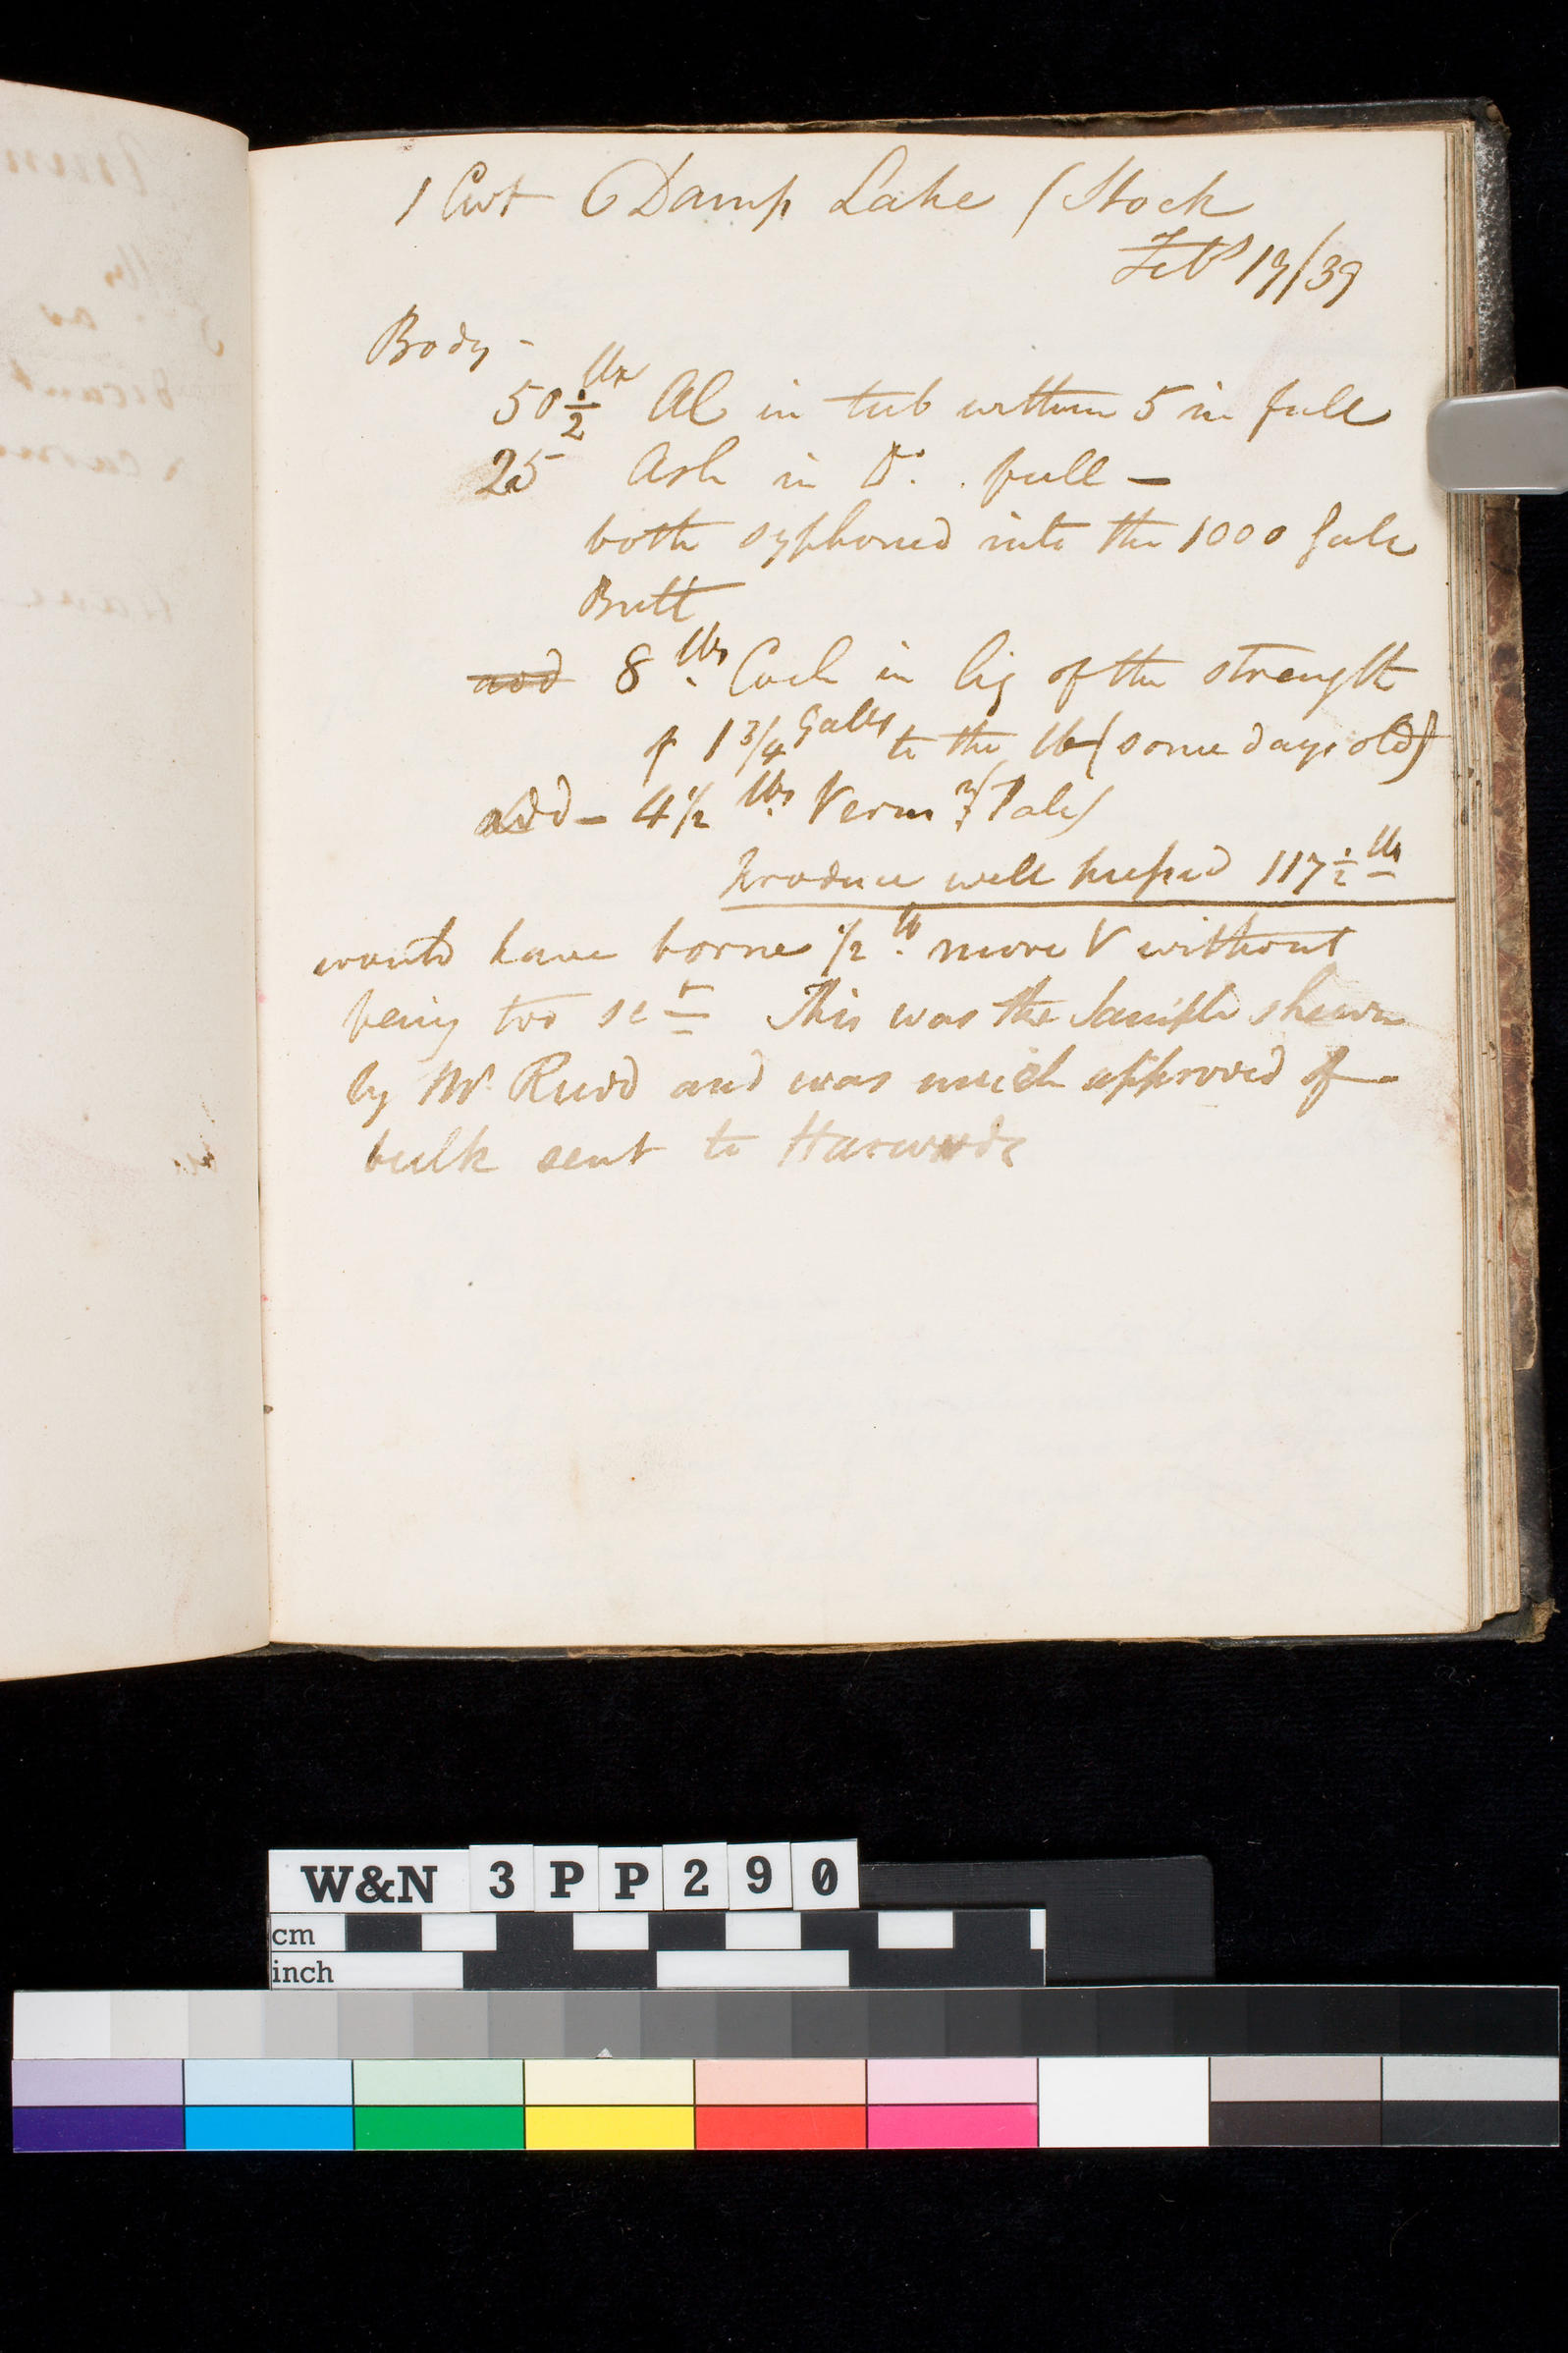 1 Cwt C Damp Lake (Stock
Feby 19/39
Body -
50 1/2 lbs Al in tub within 5 in full
25 Ash in Do. full -
both syphoned into the 1000 Gall
Butt
add 8 lbs Coch in liq of the strength
of 1 3/4 Galls to the lb (some days old)
add - 4 1/2 lbs Verm Pale)
Produce well pressed 117 1/2 lb
would have borne 1/2 lb more V without
being too sct This was the Sample shewn
by Mr Rudd and was much approved of -
bulk sent to Harwoods
W&N 3PP290
cm
inch